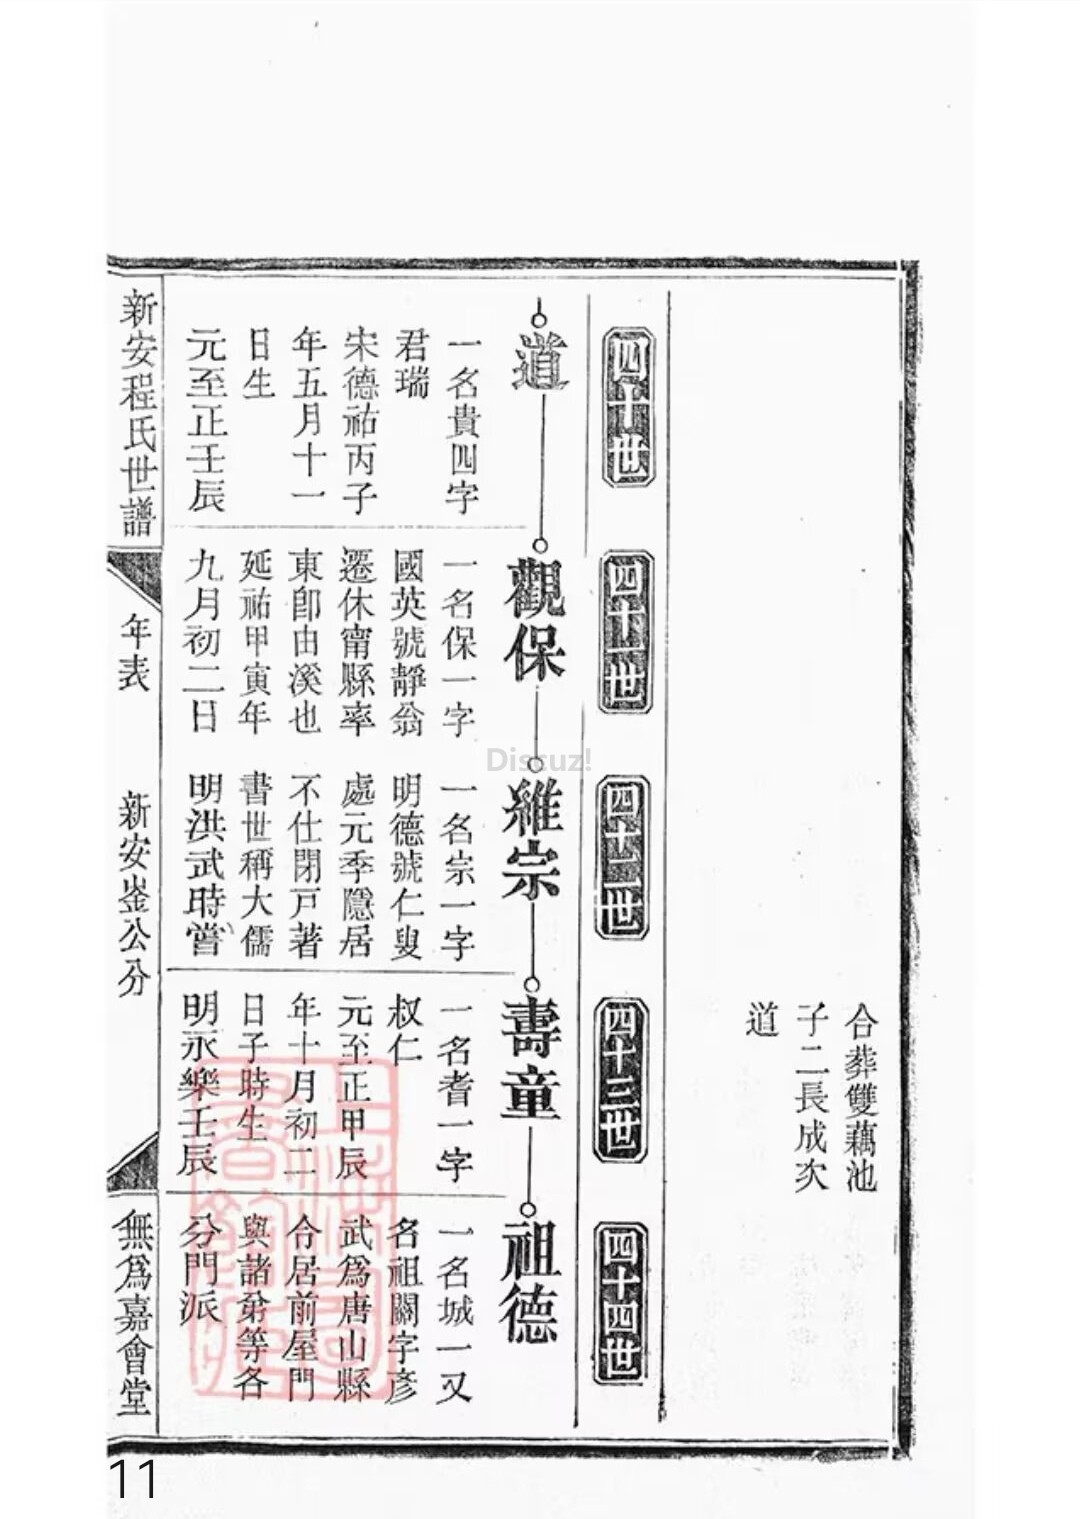 合葬雙藕池
子二長成次
道
四十世
四十一世
四十二世
四十三世
四十四世
道
一名貴四字
君瑞
宋德祐丙子
年五月十一
日生
元至正壬辰
觀保
一名保一字
國英號靜翁
遷休甯縣率
東卽由溪也
延祐甲寅年
九月初二日
維宗
一名宗一字
明德號仁叟
處元季隱居
不仕閉戸著
書世稱大儒
明洪武時嘗
壽童
一名耆一字
叔仁
元至正甲辰
年十月初二
日子時生
明永樂壬辰
祖德
一名城一又
名祖關字彥
武爲唐山縣
合居前屋門
與諸弟等各
分門派
新安程氏世譜
年表
新安崟公分
無爲嘉會堂
Discuz!
11